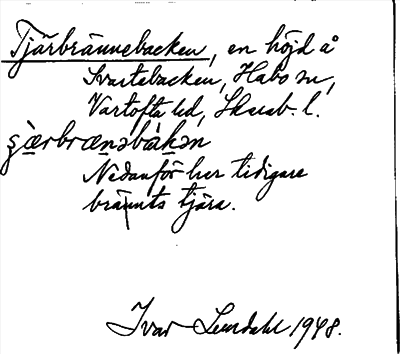 Tjärbrännebacken, en höjd å
Svartebacken, Habo sn,
Vartofta hd, Skarab. l.
ʂæ̀rbrænəbàkən
Nedanför har tidigare
bränts tjära.
Ivar Lundahl 1948.